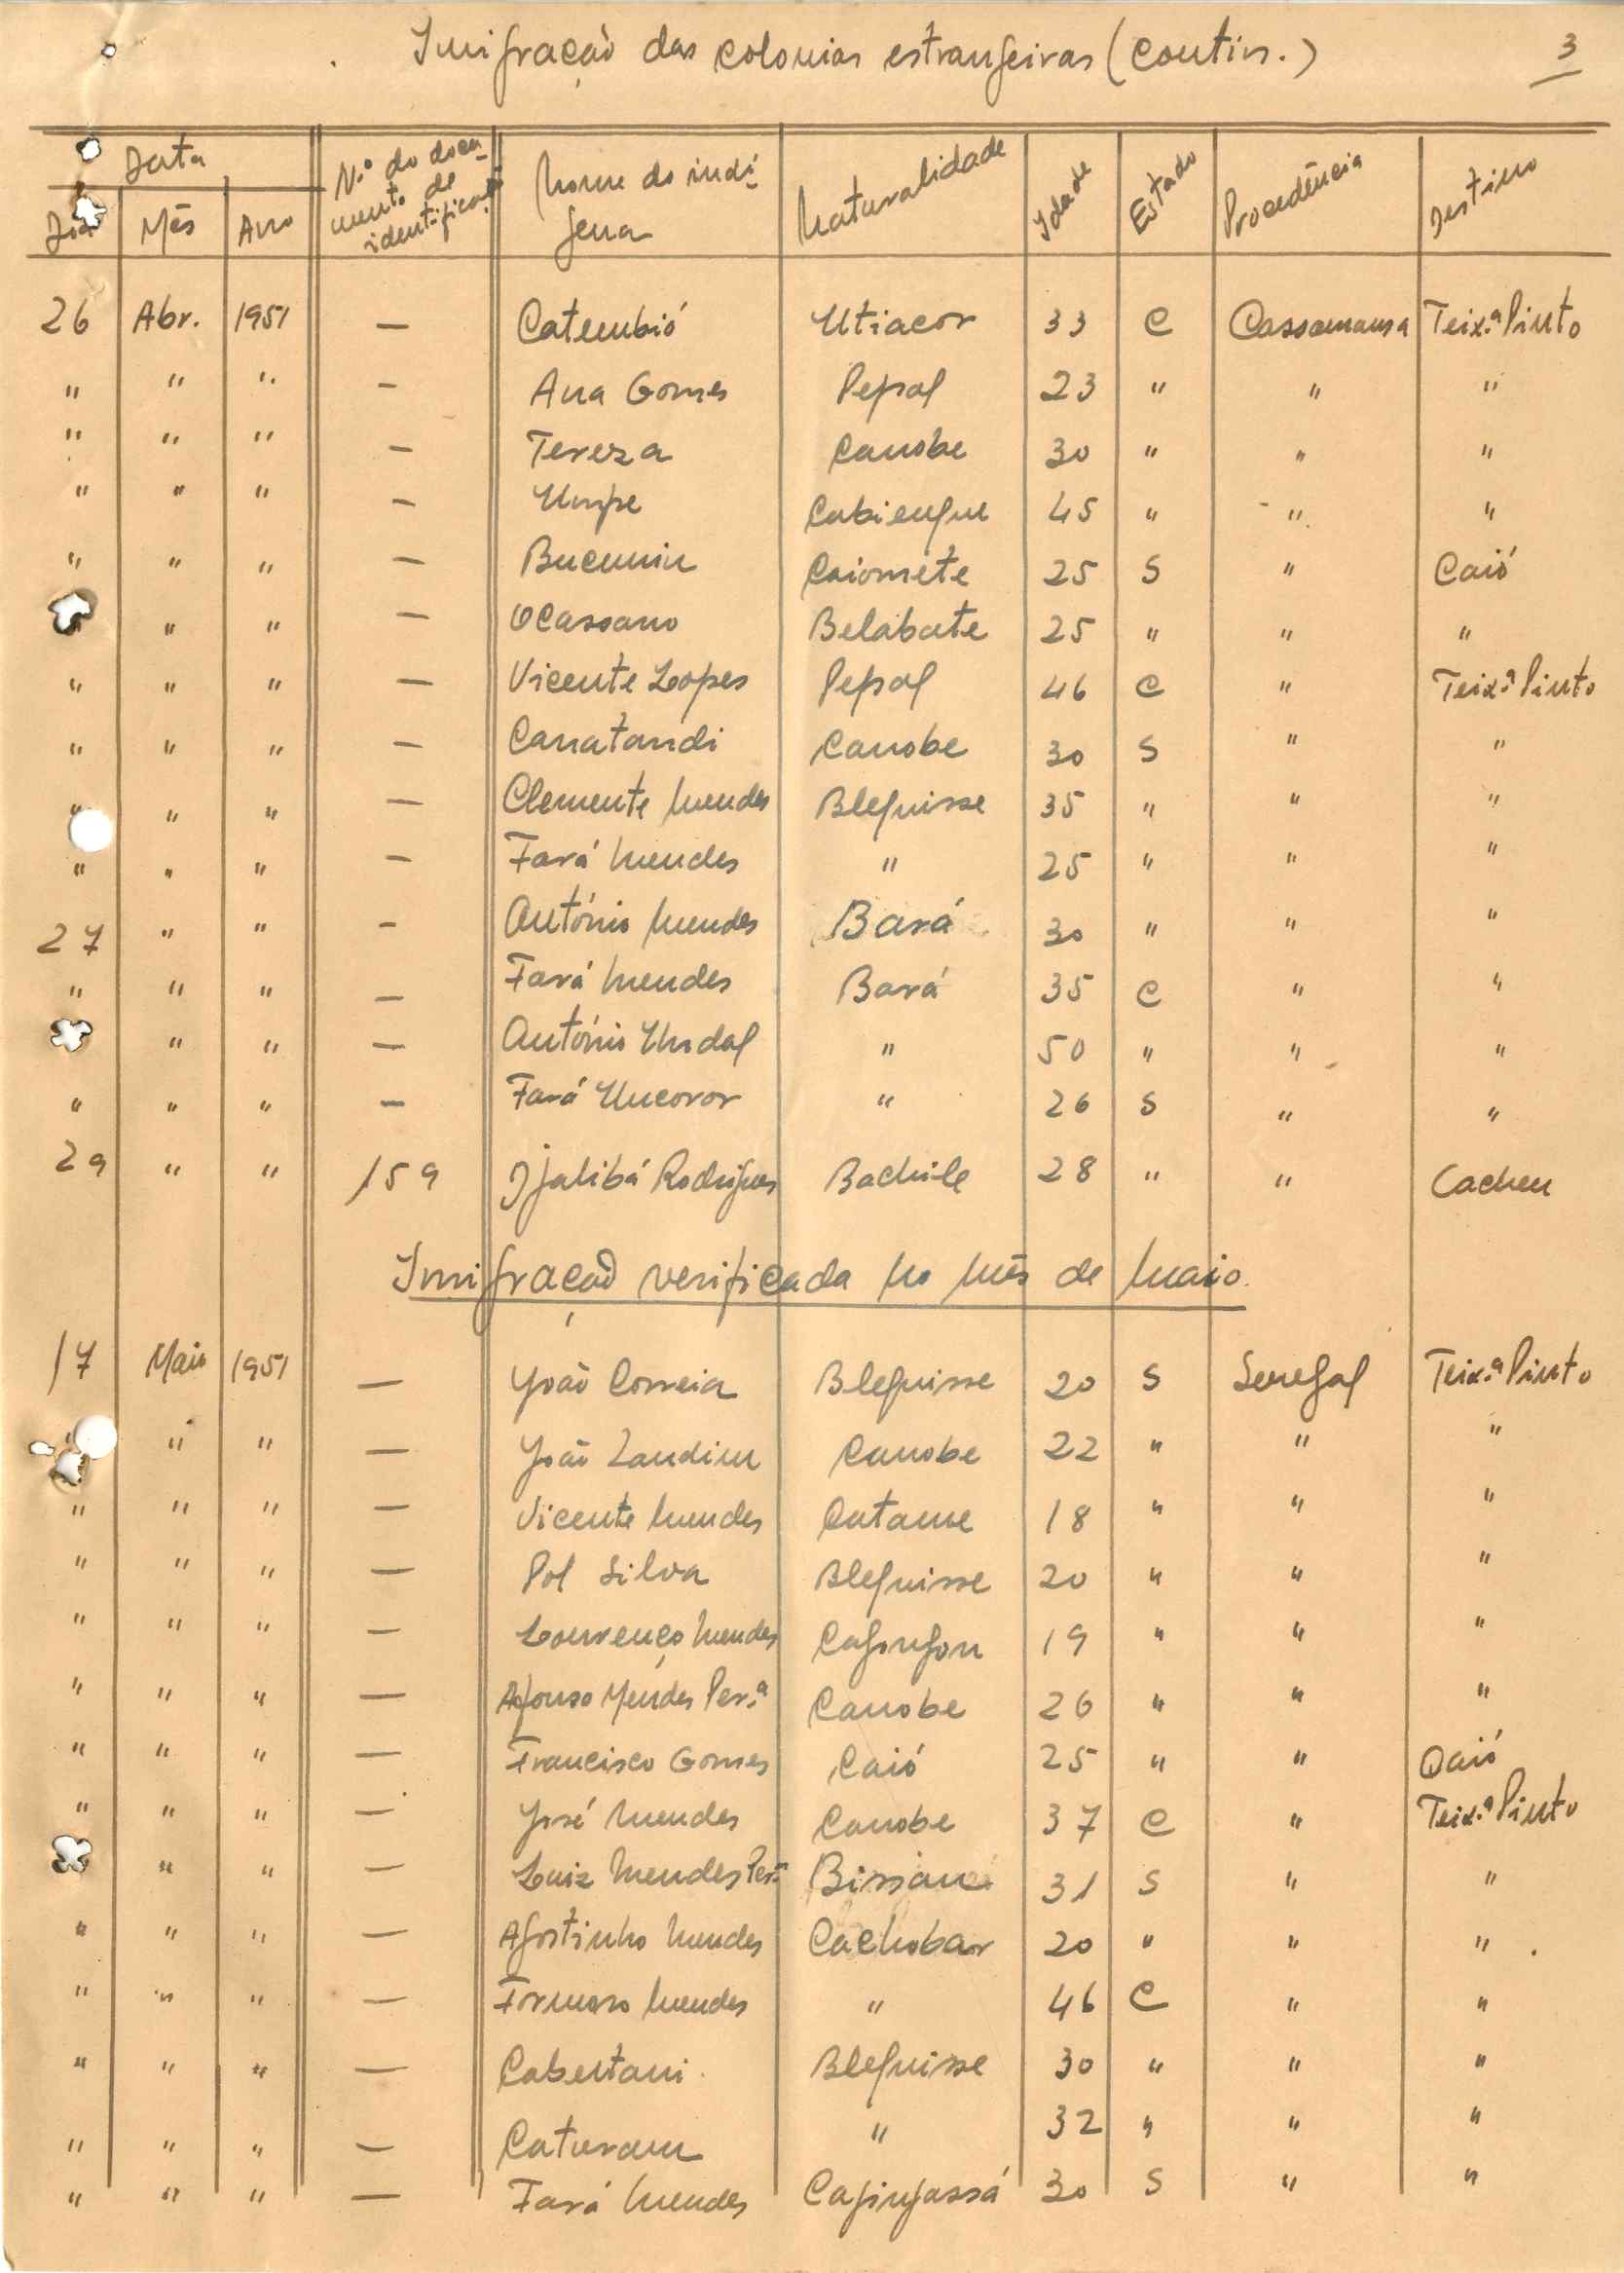 Imigração das colonias estrangeiras (contin.) 3
Data N.º do documento de identificação Nome do indígena Naturalidade Idade Estado Procedência Destino
Dia Mês Ano
26 Abr. 1951 — Catembió Utiacor 33 C Cassamansa Teix.ª Pinto
" " " — Ana Gomes Pepal 23 " " "
" " " — Tereza Canobe 30 " " "
" " " — Umpe Cabiengue 45 " " "
" " " — Bucumin Caiomete 25 S " Caió
" " — Ocassano Belabate 25 " " "
" " " — Vicente Lopes Pepal 46 C " Teix.ª Pinto
" " " — Canatandi Canobe 30 S " "
" " " — Clemente Mendes Blequisse 35 " " "
" " " — Fará Mendes " 25 " " "
27 " " — António Mendes Bará 30 " " "
" " " — Fará Mendes Bará 35 C " "
" " — António Undal " 50 " " "
" " " — Fará Uncoror " 26 S " "
29 " " 159 Jgalibá Rodrigues Bachile 28 " " Cacheu
Imigração verificada no mês de Maio
17 Maio 1951 — João Correia Blequisse 20 S Senegal Teix.ª Pinto
" " " — João Landim Canobe 22 " " "
" " " — Vicente Mendes Catame 18 " " "
" " " — Pol Silva Blequisse 20 " " "
" " " — Lourenço Mendes Cagongon 19 " " "
" " " — Afonso Mendes Per.ª Canobe 26 " " "
" " " — Francisco Gomes Caió 25 " " Caió
" " " — José Mendes Canobe 37 C " Teix.ª Pinto
" " — Luiz Mendes Per.ª Bissau 31 S " "
" " " — Agostinho Mendes Cachobar 20 " " "
" " " — Formoso Mendes " 46 C " "
" " " — Cabentani Blequisse 30 " " "
" " " — Caturam " 32 " " "
" " " — Fará Mendes Cagingassá 30 S " "